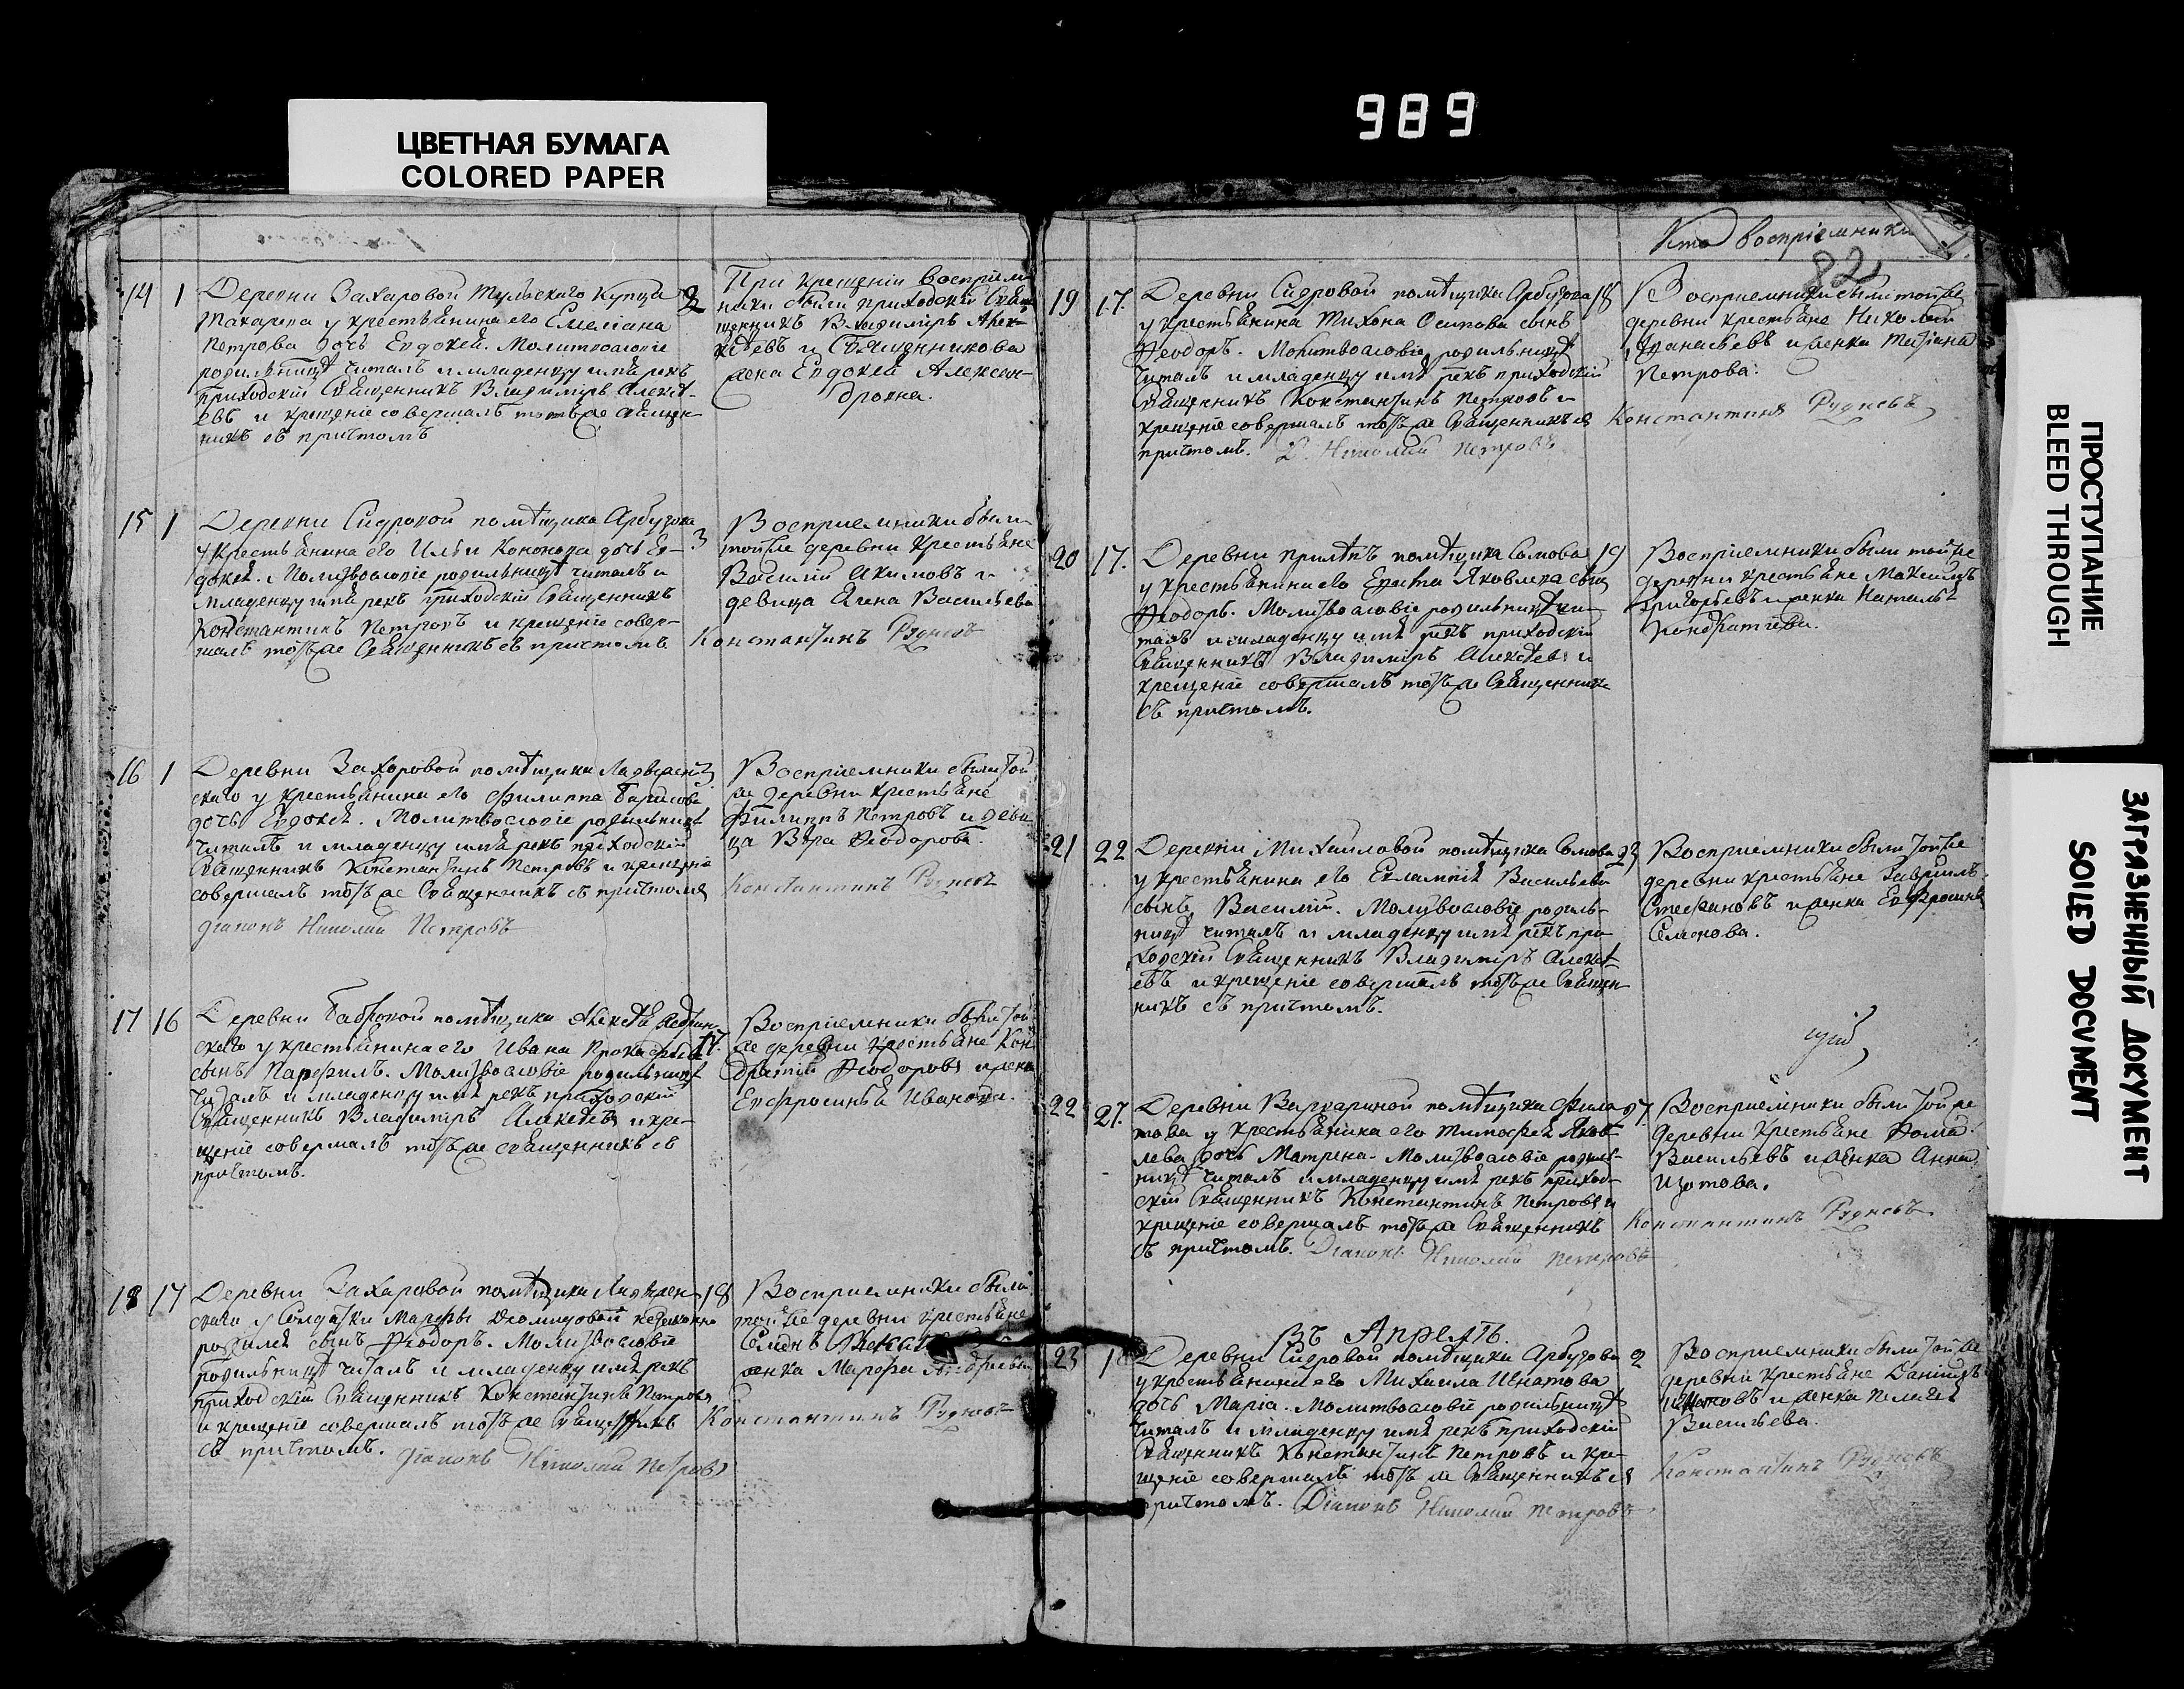 989
ЦВЕТНАЯ БУМАГА
COLORED PAPER
14 1 Деревни Захаровой Тульскаго Купца 2
Макарова у крестьянина его Емелiана
Петрова дочь Евдокея. Молитвословiе
родильницѣ читалъ и младенцу имя рекъ
Приходскiй Священникъ Владимiръ Алексѣ-
евъ и крещенiе совершалъ тотъ же священ-
никъ съ причтомъ
При крещенiи восприем-
ники были приходскiй Свяще-
щенникъ Владимiръ Алек-
сѣевъ и Священникова
жена Евдокея Александровна.
15 1 Деревни Сидровой помѣщика Арбузова 3
у крестьянина его Ильи Кононова дочь Ев-
докея. Молитвословiе родильницѣ читалъ и
младенцу имя рекъ приходскiй Священникъ
Константинъ Петровъ и крещенiе совер-
шалъ тотъ же Священникъ съ причтомъ
Восприемники были
той же деревни крестьяне
Василий Акимовъ и
девица Елена Васильева
Константинъ Рудневъ
16 1 Деревни Захаровой помѣщика
скаго у крестьянина его Филиппа Борисова
дочь Евдокея. Молитвословiе родильницѣ
читалъ и младенцу имя рекъ приходскiй
Священникъ Константинъ Петровъ и крещенiе
совершалъ тотъ же Священникъ съ причтомъ
дiаконъ Николай Петровъ
Восприемники были той
же деревни крестьяне
Филиппъ Петровъ и деви-
ца Вѣра Феодорова.
Константинъ Рудневъ
17 16 Деревни Бобровой помѣщика Алексѣя
скаго у крестьянина его Ивана Прокофьева 17.
сынъ Парфилъ. Молитвословiе родильницѣ
читалъ и младенцу имя рекъ приходскiй
Священникъ Владимiръ Алексѣевъ и кре-
щенiе совершалъ тотъ же священникъ съ
причтомъ.
Восприемники были той
же деревни крестьяне Кон-
дратiй Феодоровъ и жена
Евфросинья Иванова.
18 17 Деревни Захаровой помѣщика 18
у Солдатки Марфы Дiомидовой незаконно
родился сынъ Феодоръ. Молитвословiе
родильницѣ читалъ и младенцу имя рекъ
приходскiй Священникъ Константинъ Петровъ
и крещенiе совершалъ тотъ же Священникъ
съ причтомъ. дiаконъ Николай Петровъ
Восприемники были
той же деревни крестьяне
Семенъ
женка Марфа Андреева
Константинъ Рудневъ
Кто восприемники
82
19 17. Деревни Сидровой помѣщика Арбузова 18
у крестьянина Тихона Осипова сынъ
Феодоръ. Молитвословiе родильницѣ
читалъ и младенцу имя рекъ приходскiй
Священникъ Константинъ Петровъ и
крещенiе совершалъ тотъ же Священникъ съ
причтомъ. Д. Николай Петровъ
Восприемники были той же
деревни крестьяне Николай
Афанасьевъ и женка Татiана
Петрова.
Константинъ Рудневъ
20 17. Деревни Прилѣпъ помѣщика Сомова 19
у крестьянина его Ерофея Яковлева сынъ
Феодоръ. Молитвословiе родильницѣ чи-
талъ и младенцу имя рекъ приходскiй
Священникъ Владимiръ Алексѣевъ и
крещенiе совершалъ тотъ же Священникъ
съ причтомъ.
Восприемники были той же
деревни крестьяне Максимъ
Григорьевъ и женка Наталья
Кондратiева.
21 22 Деревни Михаиловой помѣщика Сомова 23
у крестьянина его Евлампiя Васильева
сынъ Василий. Молитвословiе родиль-
ницѣ читалъ и младенцу имя рекъ при-
ходскiй Священникъ Владимiръ Алексѣ-
евъ и крещенiе совершалъ тотъ же Священ-
никъ съ причтомъ.
Восприемники были той же
деревни крестьяне Гавриилъ
Стефановъ и женка Евфросинья
Семенова.
22 27. Деревни Варвариной помѣщика Фила- 27.
това у крестьянина его Тимофея Яков-
лева дочь Матрена. Молитвословiе родиль-
ницѣ читалъ и младенцу имя рекъ приход-
скiй Священникъ Константинъ Петровъ и
крещенiе совершалъ тотъ же Священникъ
съ причтомъ. Дiаконъ Николай Петровъ
Восприемники были той же
деревни крестьяне Фома
Васильевъ и женка Анна
Изотова.
Константинъ Рудневъ
Въ Апрелѣ.
23 1 Деревни Сидровой помѣщика Арбузова 2
у крестьянина его Михаила Игнатова
дочь Марiа. Молитвословiе родильницѣ
читалъ и младенцу имя рекъ приходскiй
Священникъ Константинъ Петровъ и кре-
щенiе совершалъ тотъ же Священникъ съ
причтомъ. Дiаконъ Николай Петровъ
Восприемники были той же
деревни крестьяне Данiилъ
и женка Пелагея
Васильева.
Константинъ Рудневъ
ПРОСТУПАНИЕ
BLEED THROUGH
ЗАГРЯЗНЕННЫЙ ДОКУМЕНТ
SOILED DOCUMENT